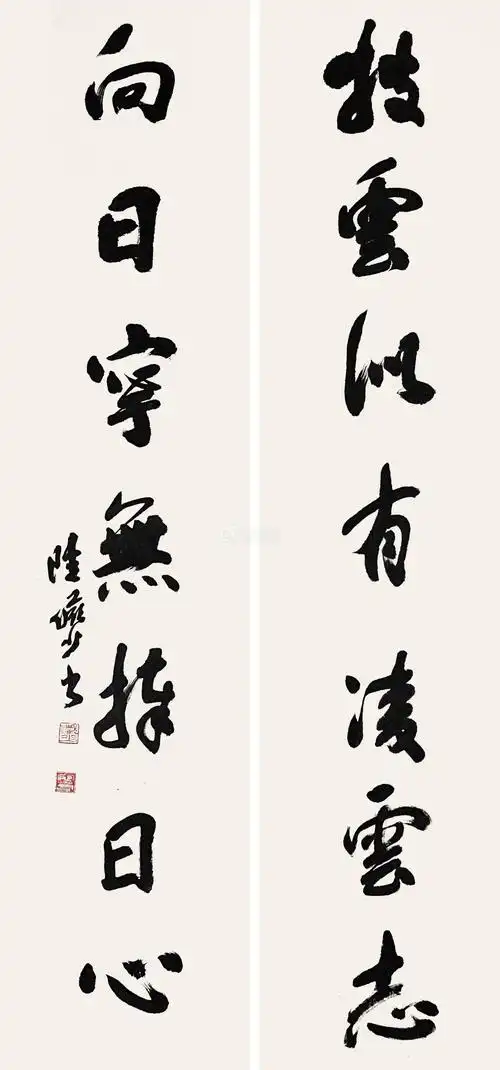 披雲似有凌雲志
向日寧無捧日心
陸儼少書